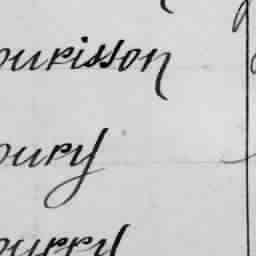 ourisson
oury
ourry